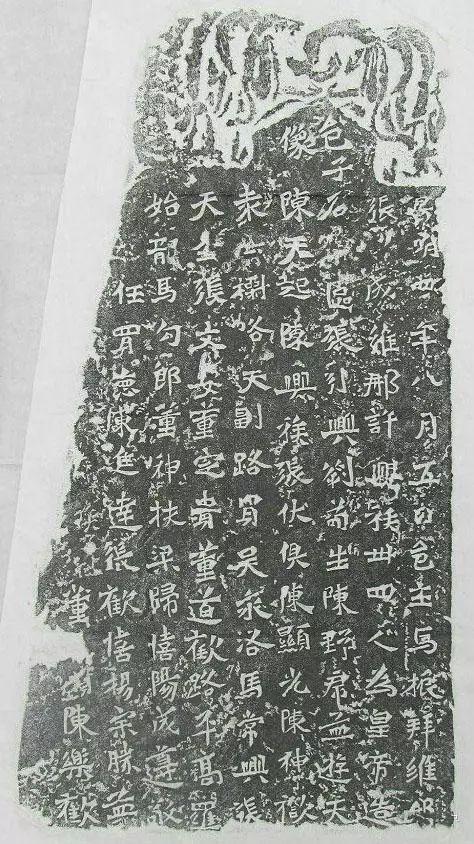 景明四年八月五日邑主馬振拜維那
張成維那許興族卅四人為皇帝造
邑子石區張引興劉苟生陳野君孟遊天
像陳天起陳興徐張伏俱陳顯光陳神歡
袁檦路天副路買吳永洛馬常興張
天生張文安董定貴董道歡路平高羅
始龍馬勾郎董神扶梁歸憘陽成遵敬
任買德陳進達張歡憘楊宗勝孟
董陳樂歡